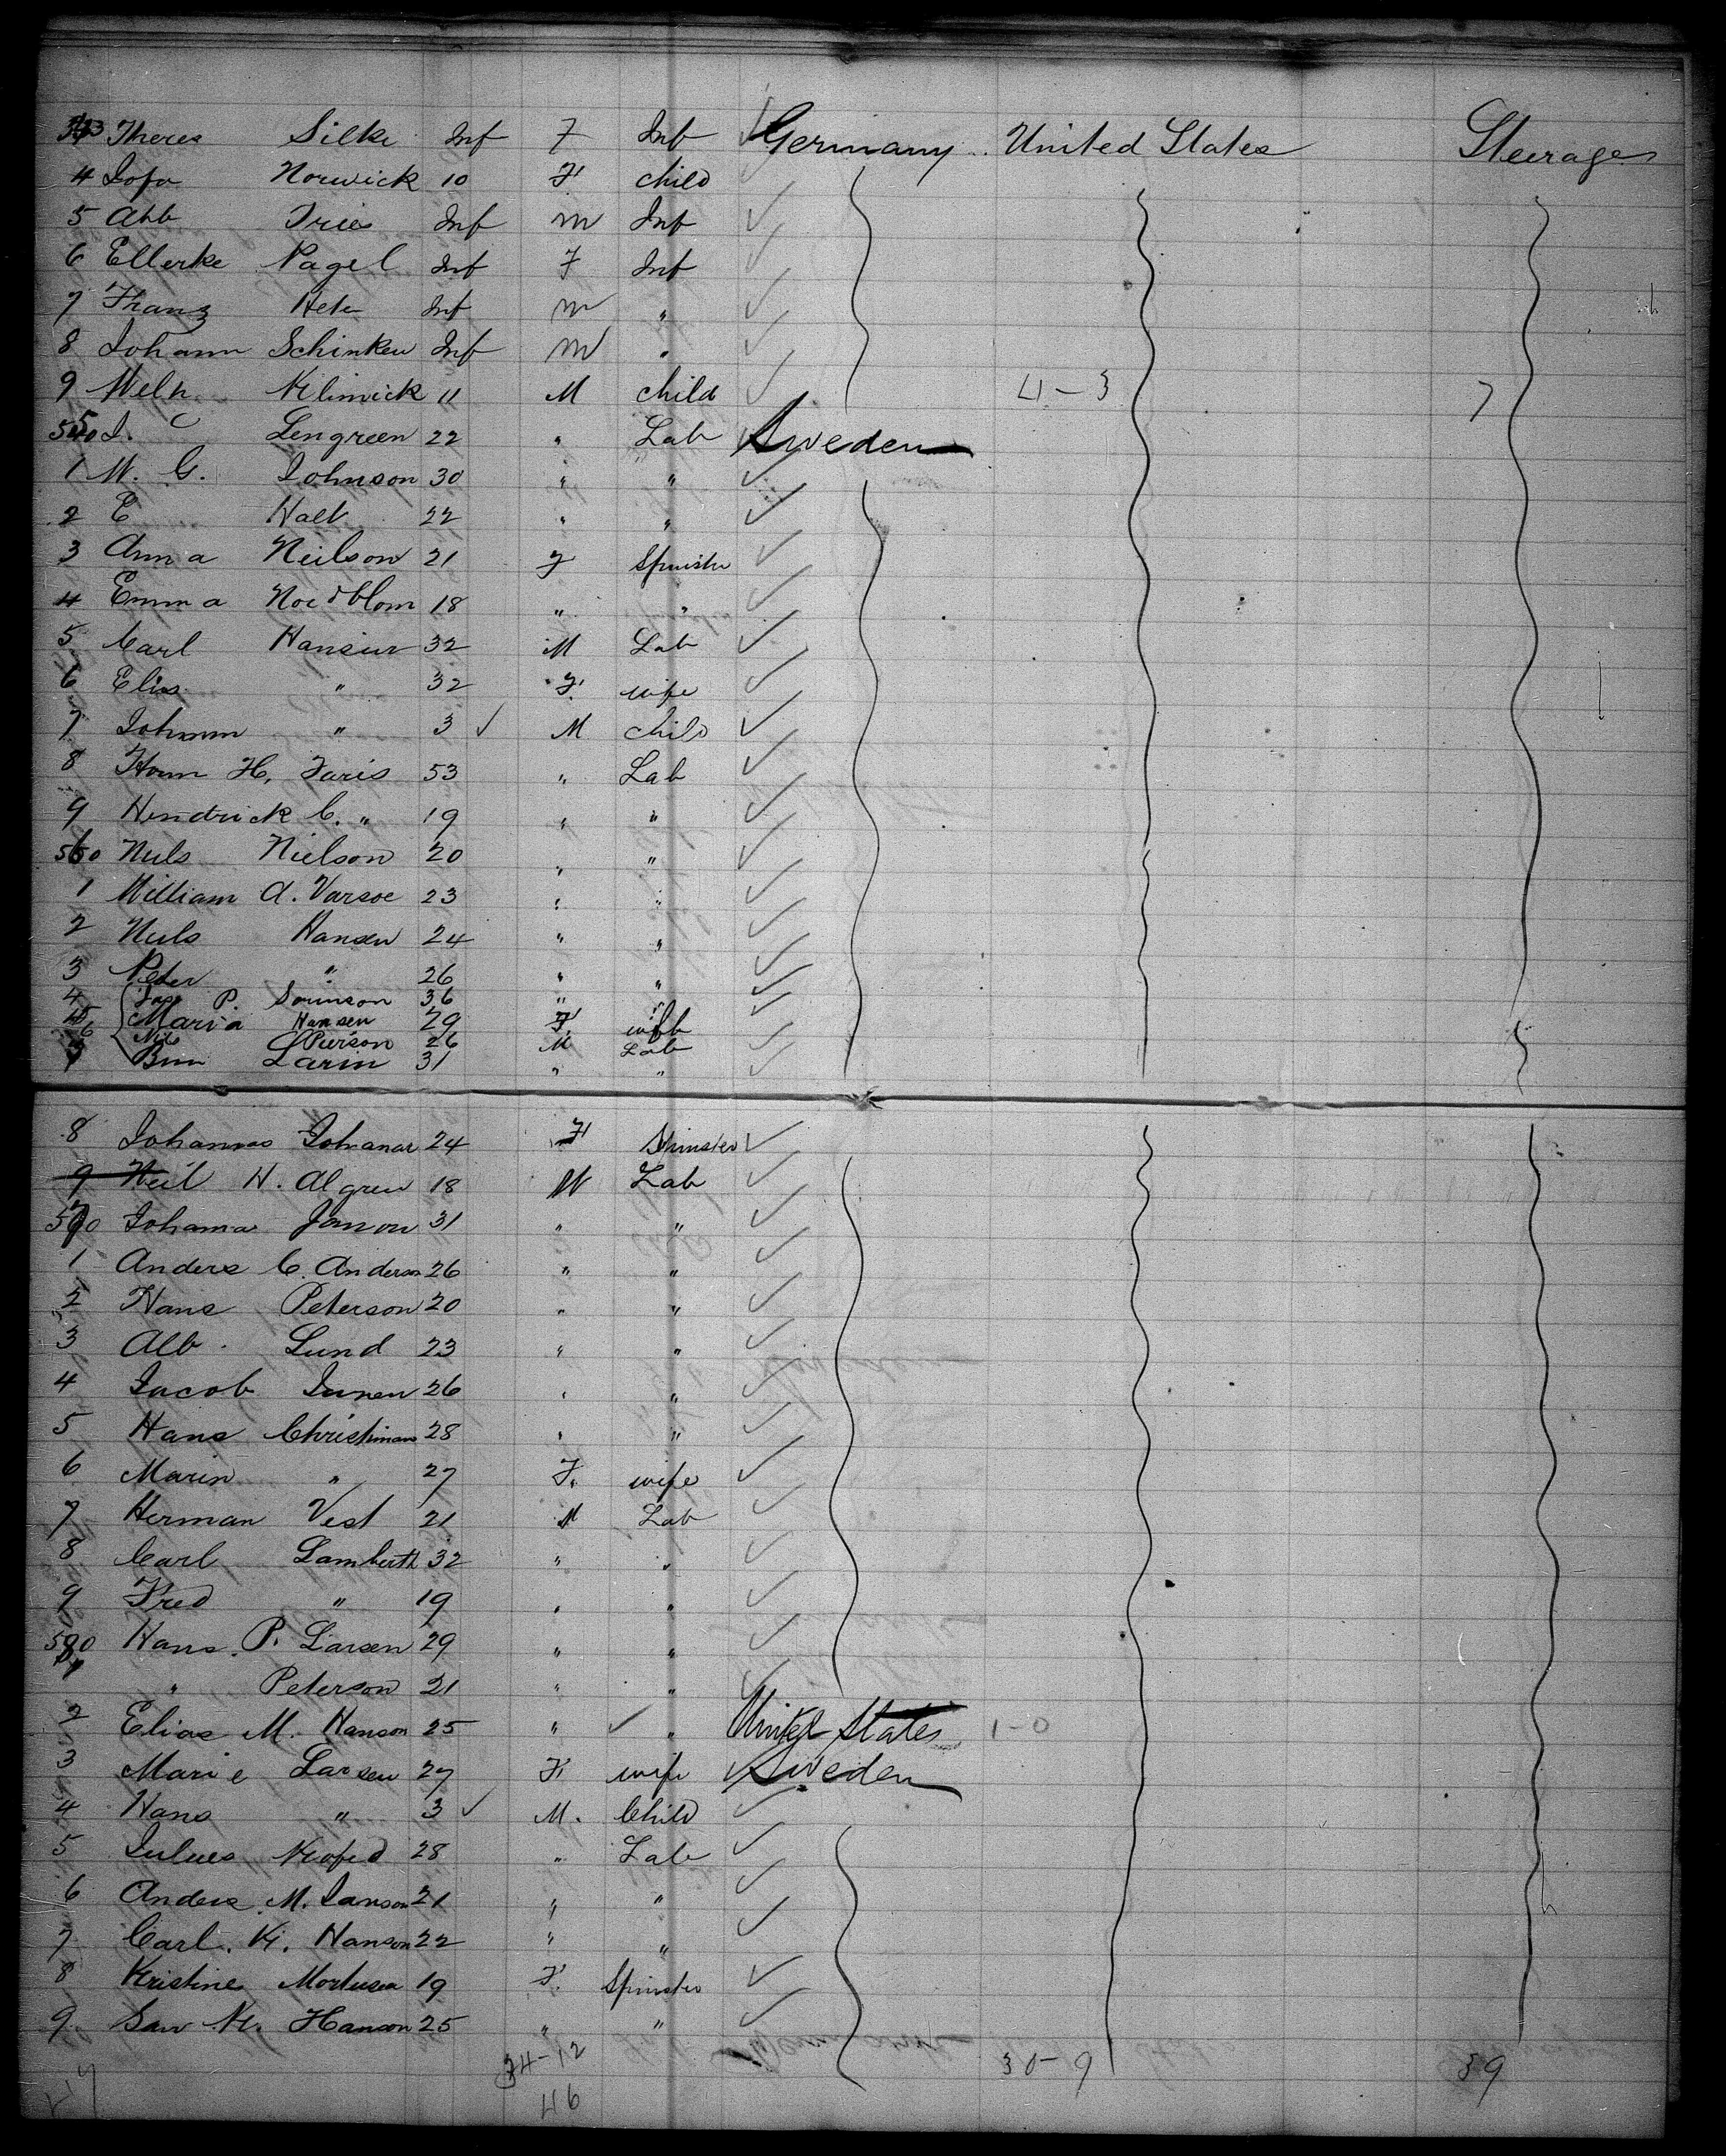 Theres Silke Inf F Inf Germany United States Steerage
4 Norwick 10 F child
5 Inf M Inf
6 Ellerke Nagel Inf F Inf
7 Franz Inf M "
8 Johann Schinken Inf M "
9 Klimick 11 M child 4-3 7
J. C Lengreen 22 " Lab Sweden
1 W. G. Johnson 30 " "
2 E Halt 22 " "
3 Anna Neilson 21 F Spinster
4 Emma Nordblom 18 " "
5 Carl Hansen 32 M Lab
6 Elis " 32 F. wife
7 Johann " 3 M child
8 H. Faris 53 " Lab
9 Hendrick C. " 19 " "
Neils Nielson 20 " "
1 William A. Varsoe 23 " "
2 Neils Hansen 24 " "
3 Peter " 26 " "
4 P. Sorinson 36 " "
Maria Hansen 29 F. wife
6 Nils Pierson 26 M Lab
7 Larin 31 " "
8 Johannas Johanar 24 F Spinster
9 Neil H. Algren 18 M Lab
Johama Janon 31 " "
1 Anders C. Anderson 26 " "
2 Hans Peterson 20 " "
3 Alb. Lund 23 " "
4 Jacob Junen 26 " "
5 Hans Christman 28 " "
6 Marin " 27 F. wife
7 Herman Vest 21 M Lab
8 Carl Lamberth 32 " "
9 Fred " 19 " "
Hans P. Larsen 29 " "
1 " Peterson 21 " "
2 Elias M. Hanson 25 " " United States 1-0
3 Marie Larsen 27 F. wife Sweden
4 Hans " 3 M. Child
5 Julues Krofed 28 " Lab
6 Anders M. Janson 21 " "
7 Carl. K. Hanson 22 " "
8 Kristine Mortusen 19 F. Spinster
9 Hanson 25 " "
34-12 30-9 39
46